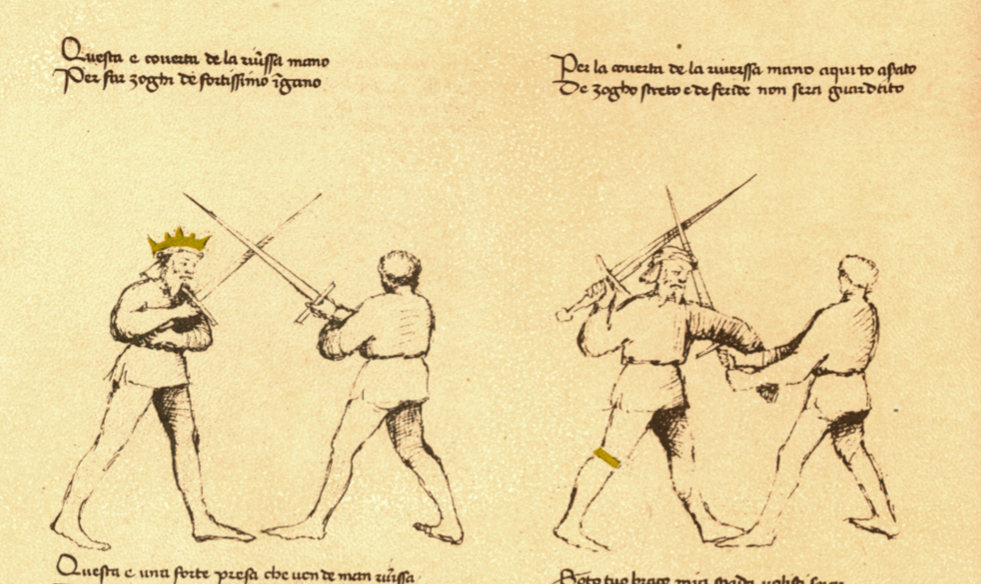 Questa e couerta de la riu̅ssa mano
Per far zoghi de fortissimo i̅gano
Per la couerta de la riuerssa mano aqui to aspato
De zogho streto e de feride non sera guardito
Questa e una forte presa che uen de man riu̅ssa
Soto tuo braço mia spada